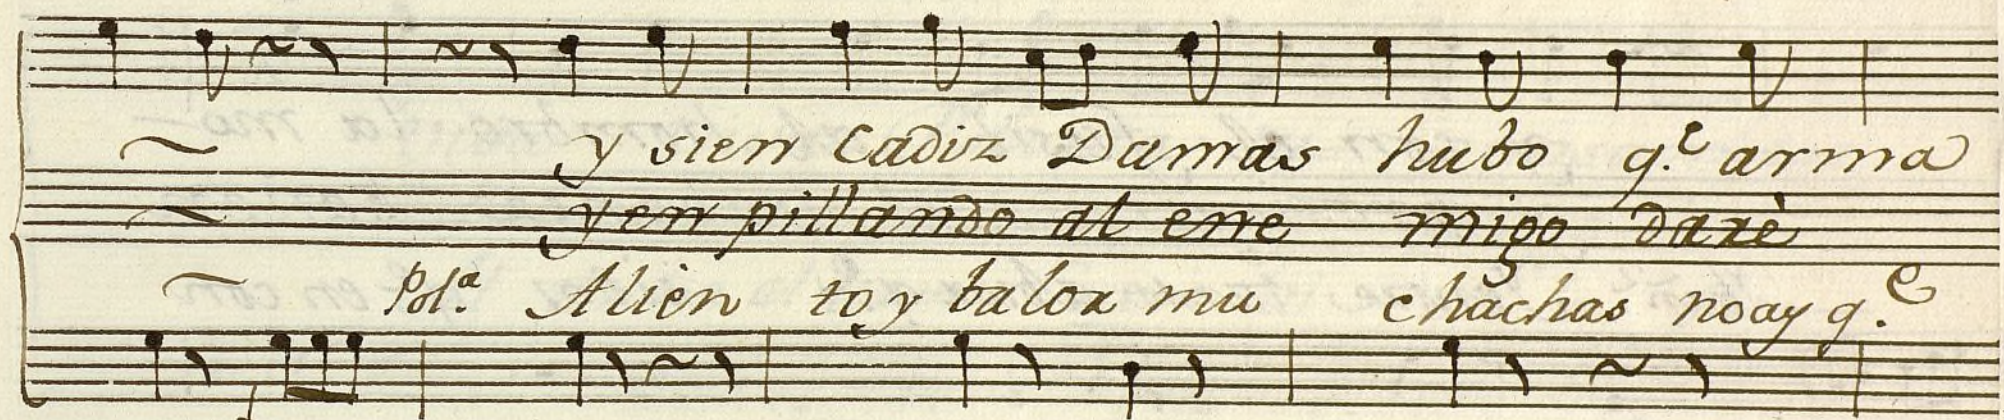 y sien Cadiz Damas hubo q.e arma
yen pillando al ene migo darè
Pol.a Alien to y balor mu chachas no ay q.e